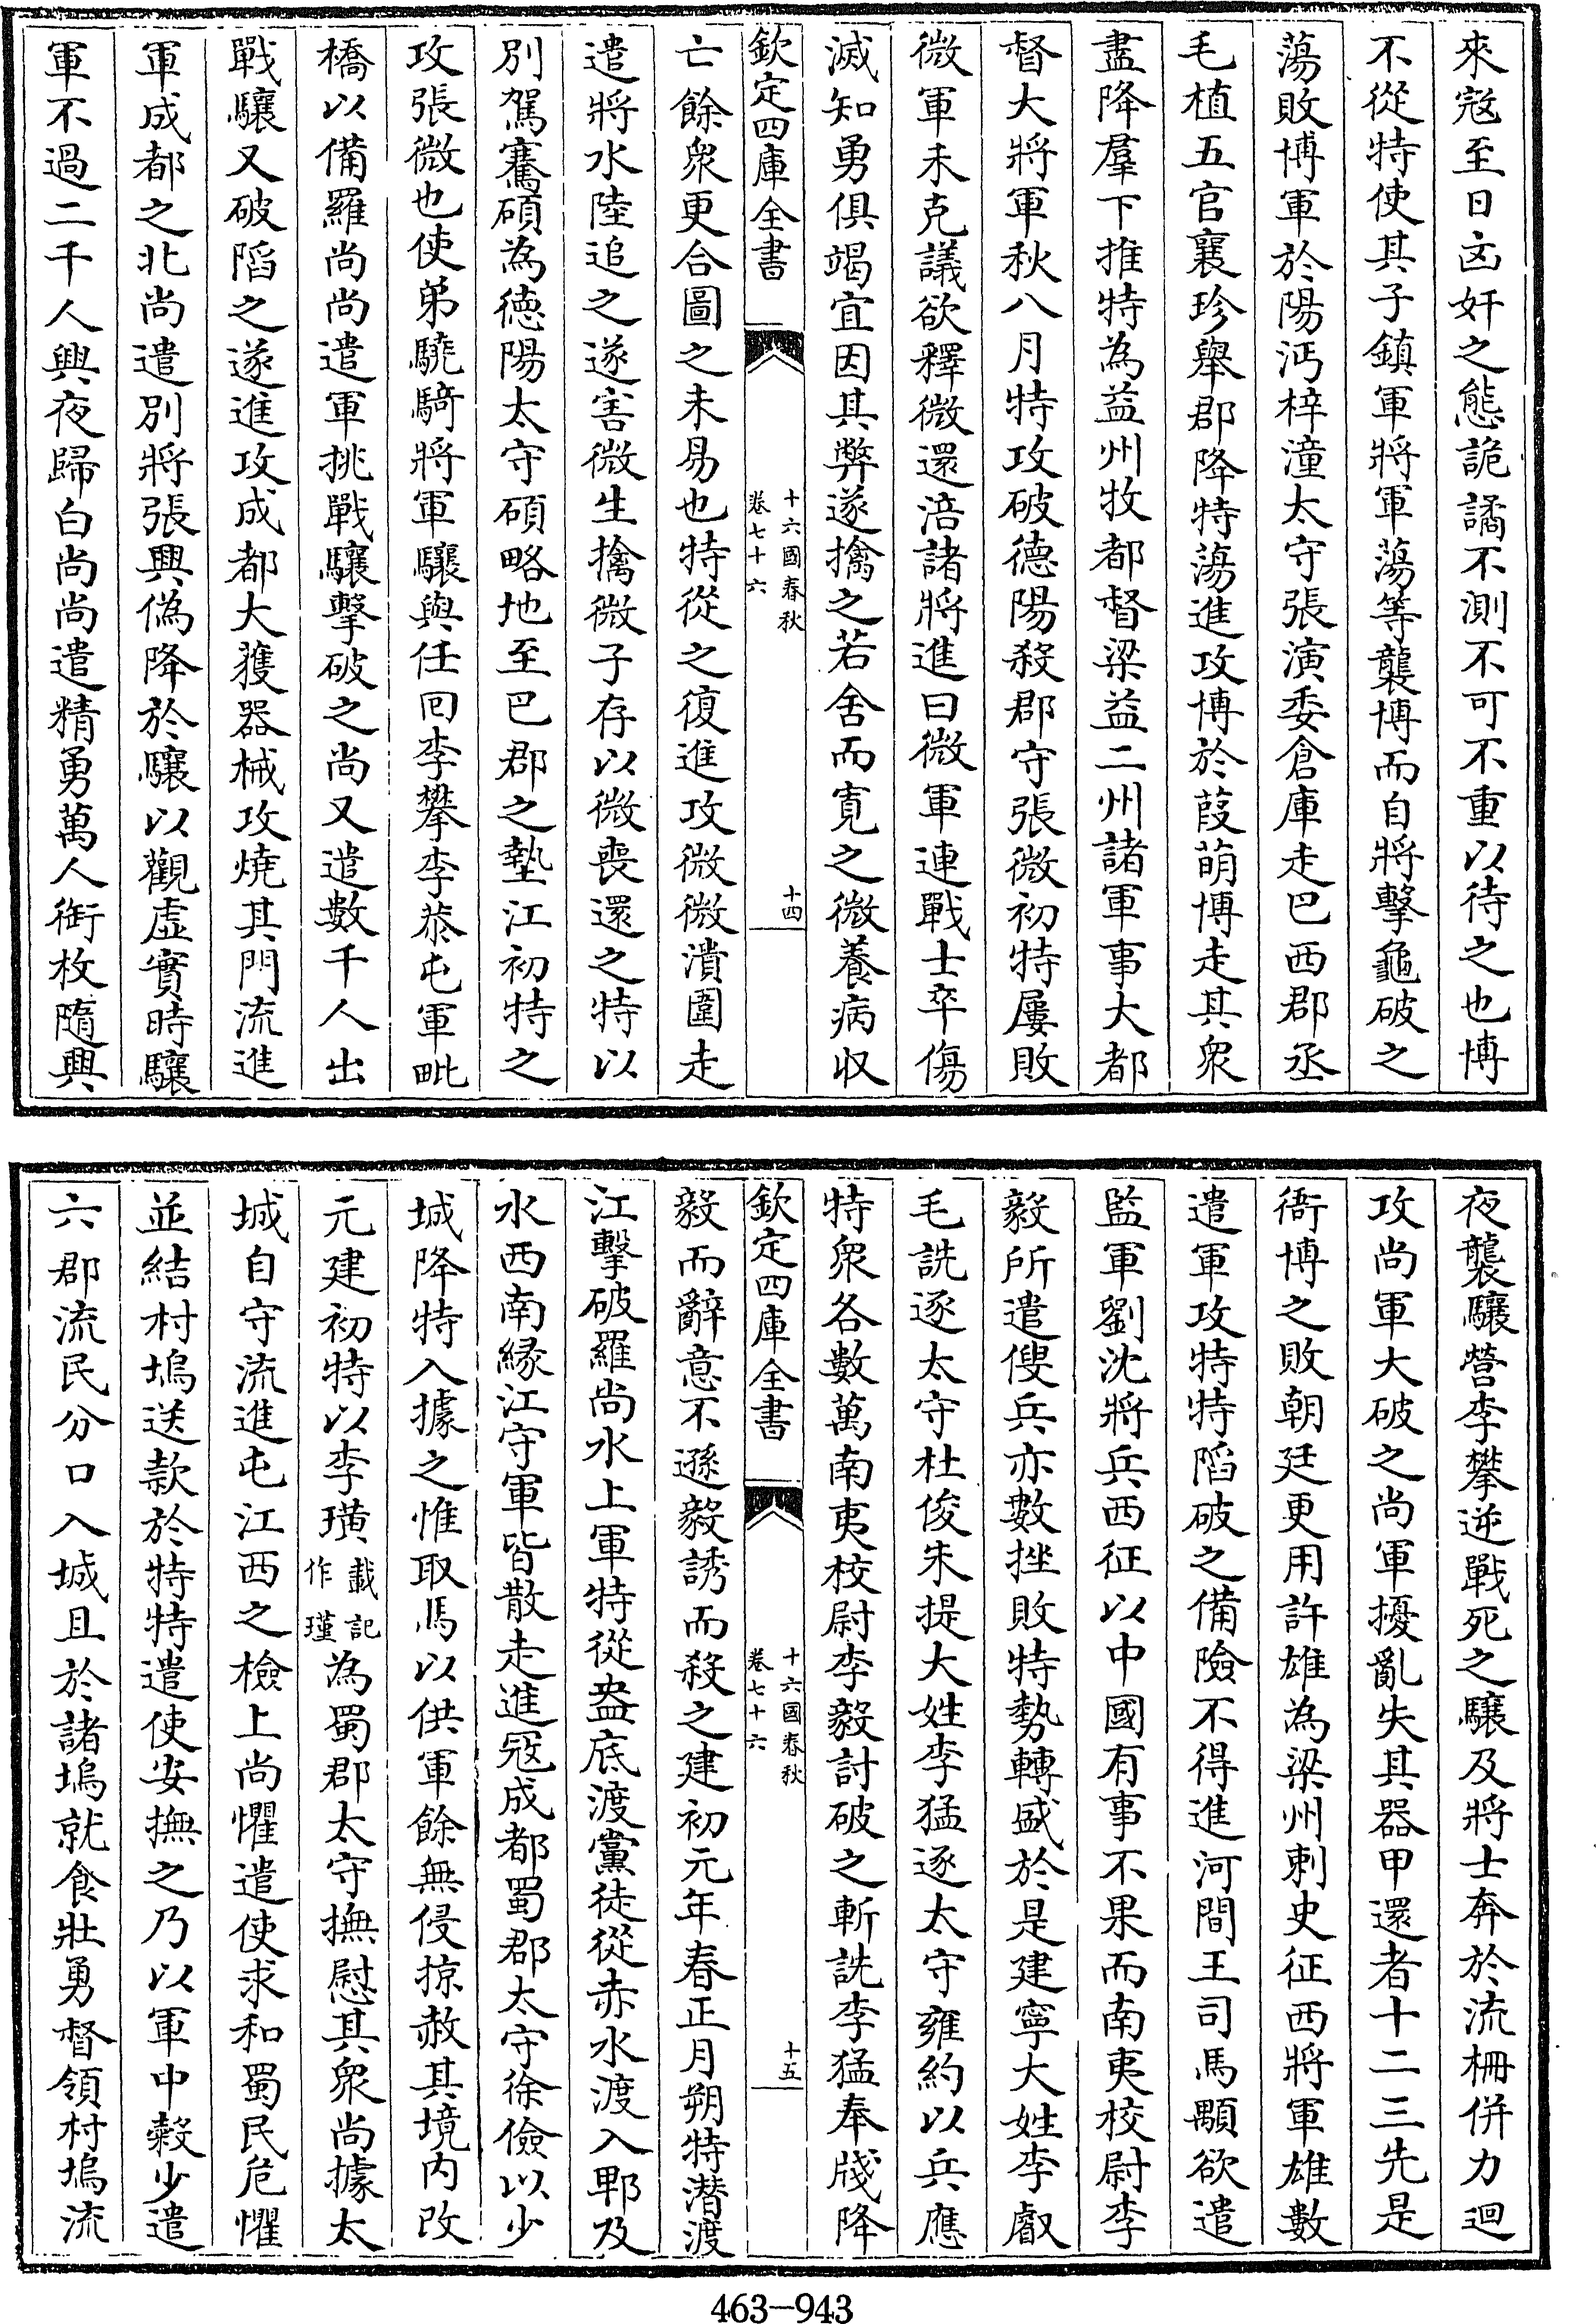 來寇至日㐫奸之態詭譎不測不可不重以待之也博
不從特使其子鎮軍將軍蕩等襲博而自將擊龜破之
蕩敗博軍於陽沔梓潼太守張演委倉庫走巴西郡丞
毛植五官襄珍舉郡降特蕩進攻博於葭萌博走其衆
盡降羣下推特為益州牧都督梁益二州諸軍事大都
督大將軍秋八月特攻破德陽殺郡守張微初特屢敗
微軍未克議欲釋微還涪諸將進曰微軍連戰士卒傷
滅知勇俱竭宜因其弊遂擒之若舍而寛之微養病収
欽定四庫全書
十六國春秋
卷七十六
十四
亡餘衆更合圖之未易也特從之復進攻微微潰圍走
遣將水陸追之遂害微生擒微子存以微喪還之特以
別駕騫碩為德陽太守碩略地至巴郡之墊江初特之
攻張微也使弟驍騎將軍驤與任回李攀李恭屯軍毗
橋以備羅尚尚遣軍挑戰驤擊破之尚又遣數千人出
戰驤又破䧟之遂進攻成都大獲器械攻燒其門流進
軍成都之北尚遣別將張興偽降於驤以觀虛實時驤
軍不過二千人興夜歸白尚尚遣精勇萬人銜枚隨興
夜襲驤營李攀逆戰死之驤及將士奔於流柵併力迴
攻尚軍大破之尚軍擾亂失其器甲還者十二三先是
衙博之敗朝廷更用許雄為梁州刺史征西將軍雄數
遣軍攻特特䧟破之備險不得進河間王司馬顒欲遣
監軍劉沈將兵西征以中國有事不果而南夷校尉李
毅所遣傁兵亦數挫敗特勢轉盛於是建寧大姓李叡
毛詵逐太守杜俊朱提大姓李猛逐太守雍約以兵應
特衆各數萬南夷校尉李毅討破之斬詵李猛奉牋降
欽定四庫全書
十六國春秋
卷七十六
十五
毅而辭意不遜毅誘而殺之建初元年春正月朔特潛渡
江擊破羅尚水上軍特從盎底渡黨徒從赤水渡入郫及
水西南緣江守軍皆散走進寇成都蜀郡太守徐儉以少
城降特入據之惟取馬以供軍餘無侵掠赦其境内改
元建初特以李璜載記作瑾為蜀郡太守撫慰其衆尚據太
城自守流進屯江西之檢上尚懼遣使求和蜀民危懼
並結村塢送款於特特遣使安撫之乃以軍中穀少遣
六郡流民分口入城且於諸塢就食壯勇督領村塢流
463-943